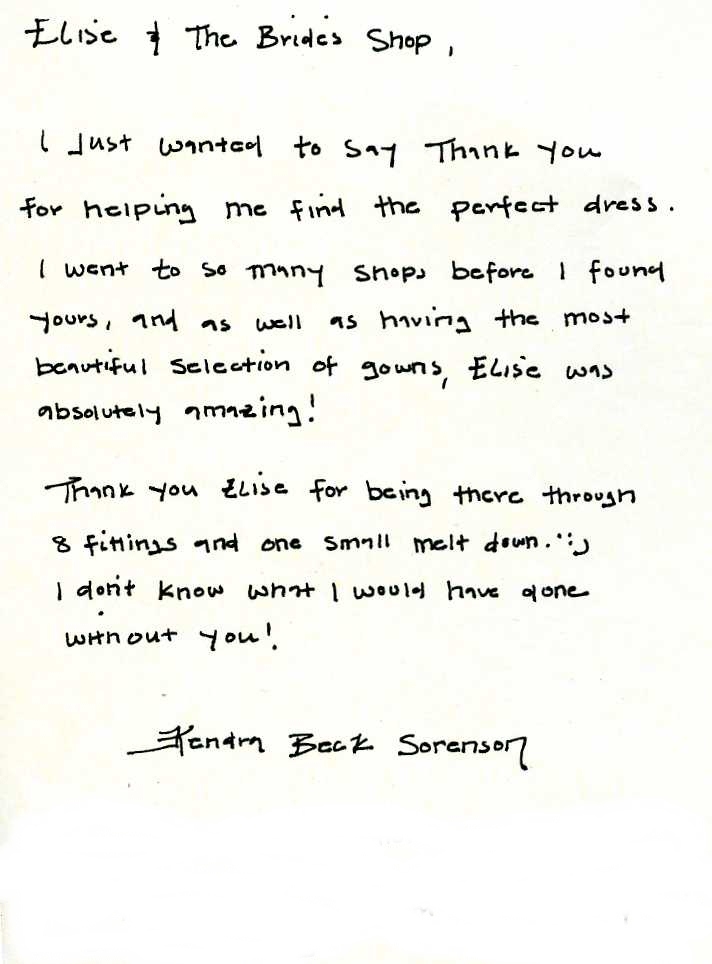 Elise & The Bride's Shop,
I Just wanted to say Thank you
for helping me find the perfect dress.
I went to so many shops before I found
yours, and as well as having the most
beautiful selection of gowns, Elise was
absolutely amazing!
Thank you Elise for being there through
8 fittings and one small melt down. :)
I don't know what I would have done
without you!
Kendra Beck Sorenson